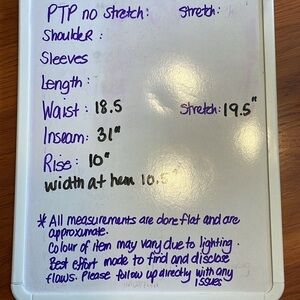 PTP no stretch: Stretch:
Shoulder:
Sleeves
Length:
Waist: 18.5 Stretch: 19.5"
Inseam: 31"
Rise: 10"
width at hem 10.5"
* All measurements are done flat and are
approximate.
Colour of item may vary due to lighting.
Best effort made to find and disclose
flaws. Please follow up directly with any
issues